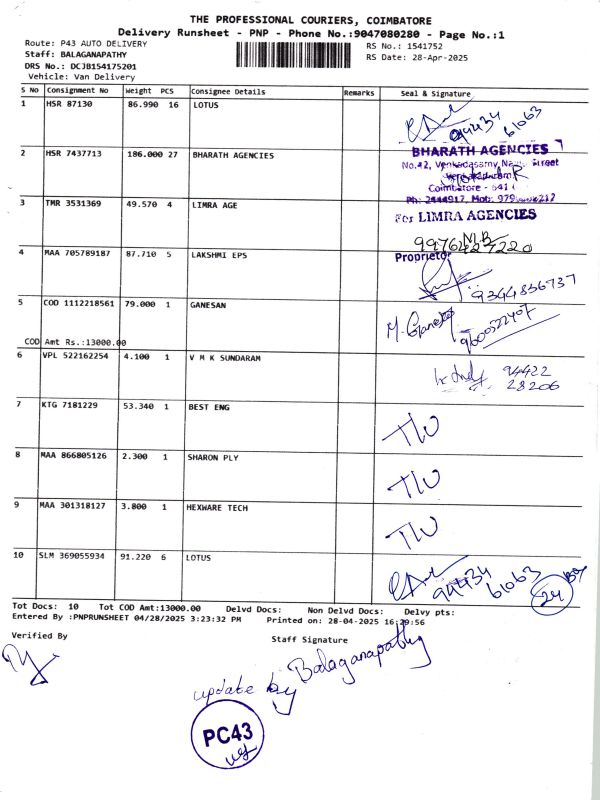 THE PROFESSIONAL COURIERS, COIMBATORE
Delivery Runsheet - PNP - Phone No.:9047080280 - Page No.:1
Route: P43 AUTO DELIVERY RS No.: 1541752
Staff: BALAGANAPATHY RS Date: 28-Apr-2025
DRS No.: DCJB154175201
Vehicle: Van Delivery
S No Consignment No Weight PCS Consignee Details Remarks Seal & Signature
1 HSR 87130 86.990 16 LOTUS
94434 61063
2 HSR 7437713 186.000 27 BHARATH AGENCIES
BHARATH AGENCIES
No.42, Venkadasamy Street
Coimbatore - 641
Ph: 2444917, Mob: 979 217
3 TMR 3531369 49.570 4 LIMRA AGE
For LIMRA AGENCIES
M.B
9976227220
Proprietor
4 MAA 705789187 87.710 5 LAKSHMI EPS
9344836737
5 COD 1112218561 79.000 1 GANESAN
M. Ganesan
9600522407
COD Amt Rs.:13000.00
6 VPL 522162254 4.100 1 V M K SUNDARAM
94422
28206
7 KTG 7181229 53.340 1 BEST ENG
T/U
8 MAA 866805126 2.300 1 SHARON PLY
T/U
9 MAA 301318127 3.800 1 HEXWARE TECH
T/U
10 SLM 369055934 91.220 6 LOTUS
94434 61063
24
Tot Docs: 10 Tot COD Amt:13000.00 Delvd Docs: Non Delvd Docs: Delvy pts:
Entered By :PNPRUNSHEET 04/28/2025 3:23:32 PM Printed on: 28-04-2025 16:29:56
Verified By Staff Signature
update by Balaganapathy
PC43